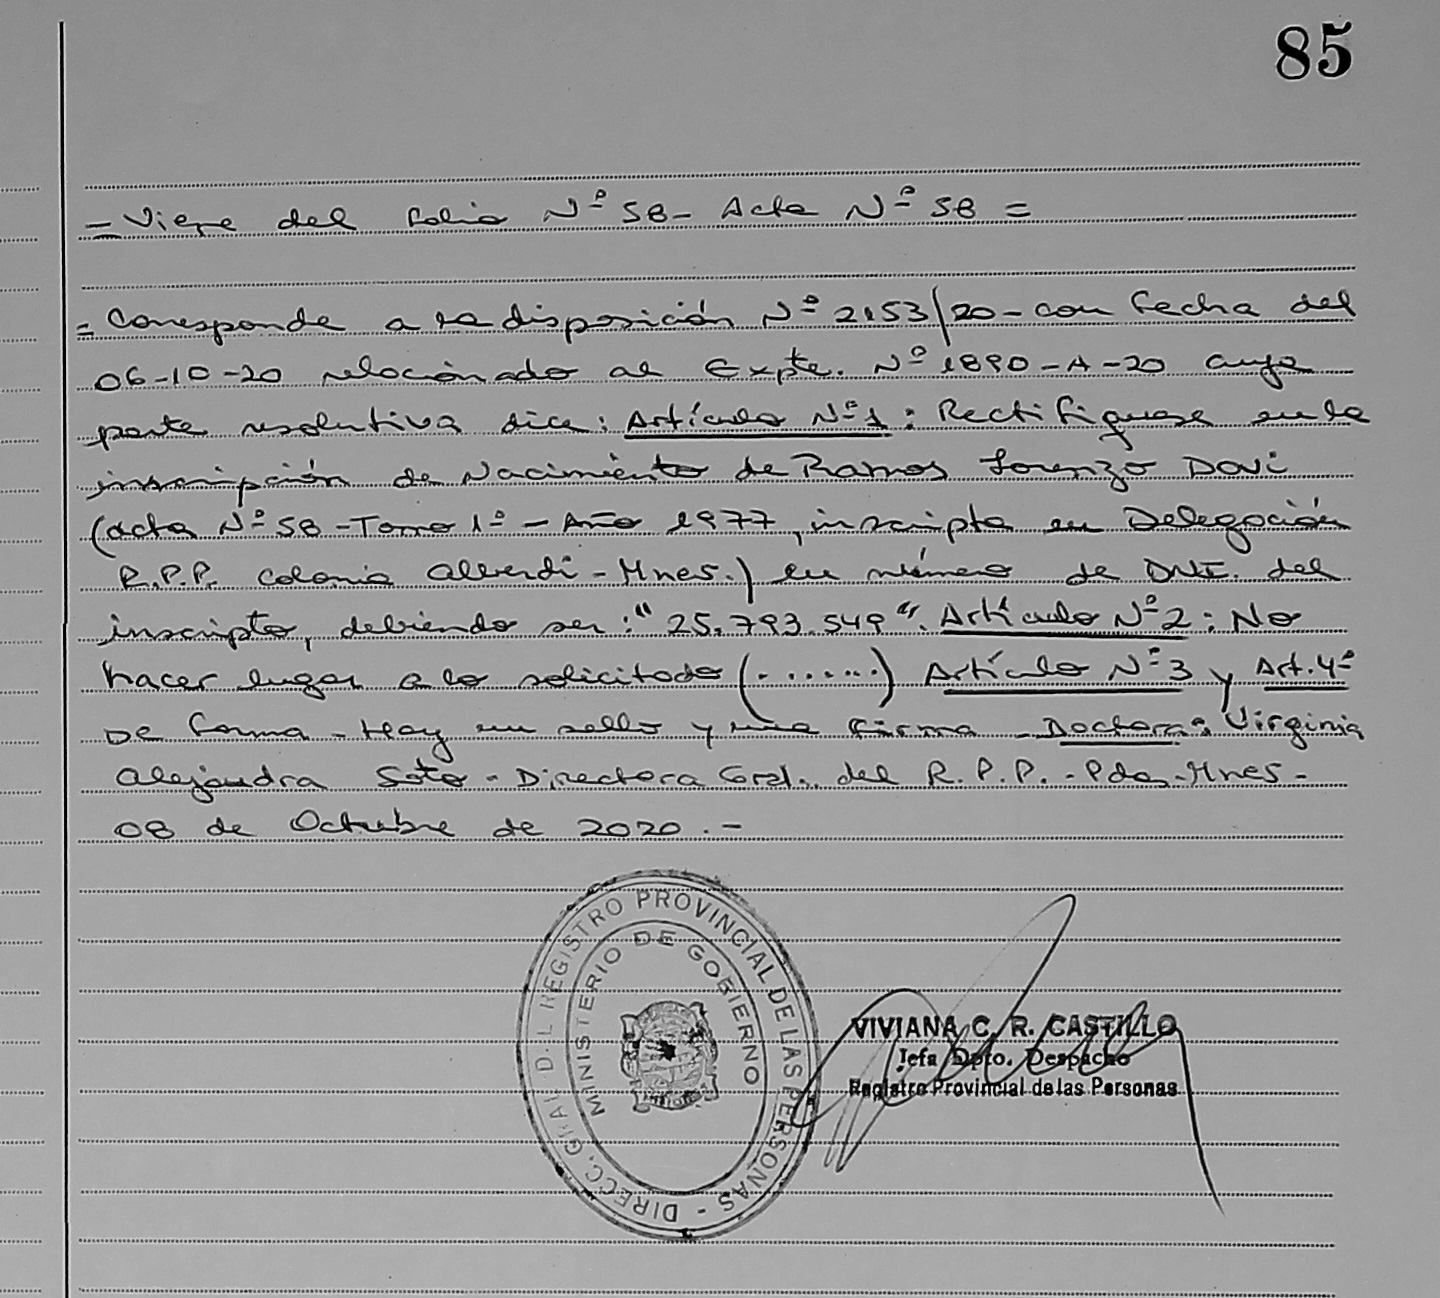 85
= Viene del folio Nº 58 - Acta Nº 58 =
= Corresponde a la disposición Nº 2153/20 - con fecha del
06-10-20 relacionado al Expte. Nº 1890-A-20 cuya
parte resolutiva dice: Artículo Nº 1: Rectifiquese en la
inscripción de Nacimiento de Ramos Lorenzo Davi
(acta Nº 58 - Tomo 1º - Año 1977, inscripta en Delegación
R.P.P. Colonia Alberdi - Mnes.) en número de DNI. del
inscripto, debiendo ser: "25.793.549". Artículo Nº 2: No
hacer lugar a lo solicitado (.......) Artículo Nº 3 y Art. 4º
De forma - Hay un sello y una firma - Doctora: Virginia
Alejandra Soto - Directora Gral. del R.P.P. - Pdas - Mnes -
08 de Octubre de 2020. -
DIRECC. GRAL. D. L REGISTRO PROVINCIAL DE LAS PERSONAS -
MINISTERIO DE GOBIERNO
VIVIANA C. R. CASTILLO
Jefa Dpto. Despacho
Registro Provincial de las Personas